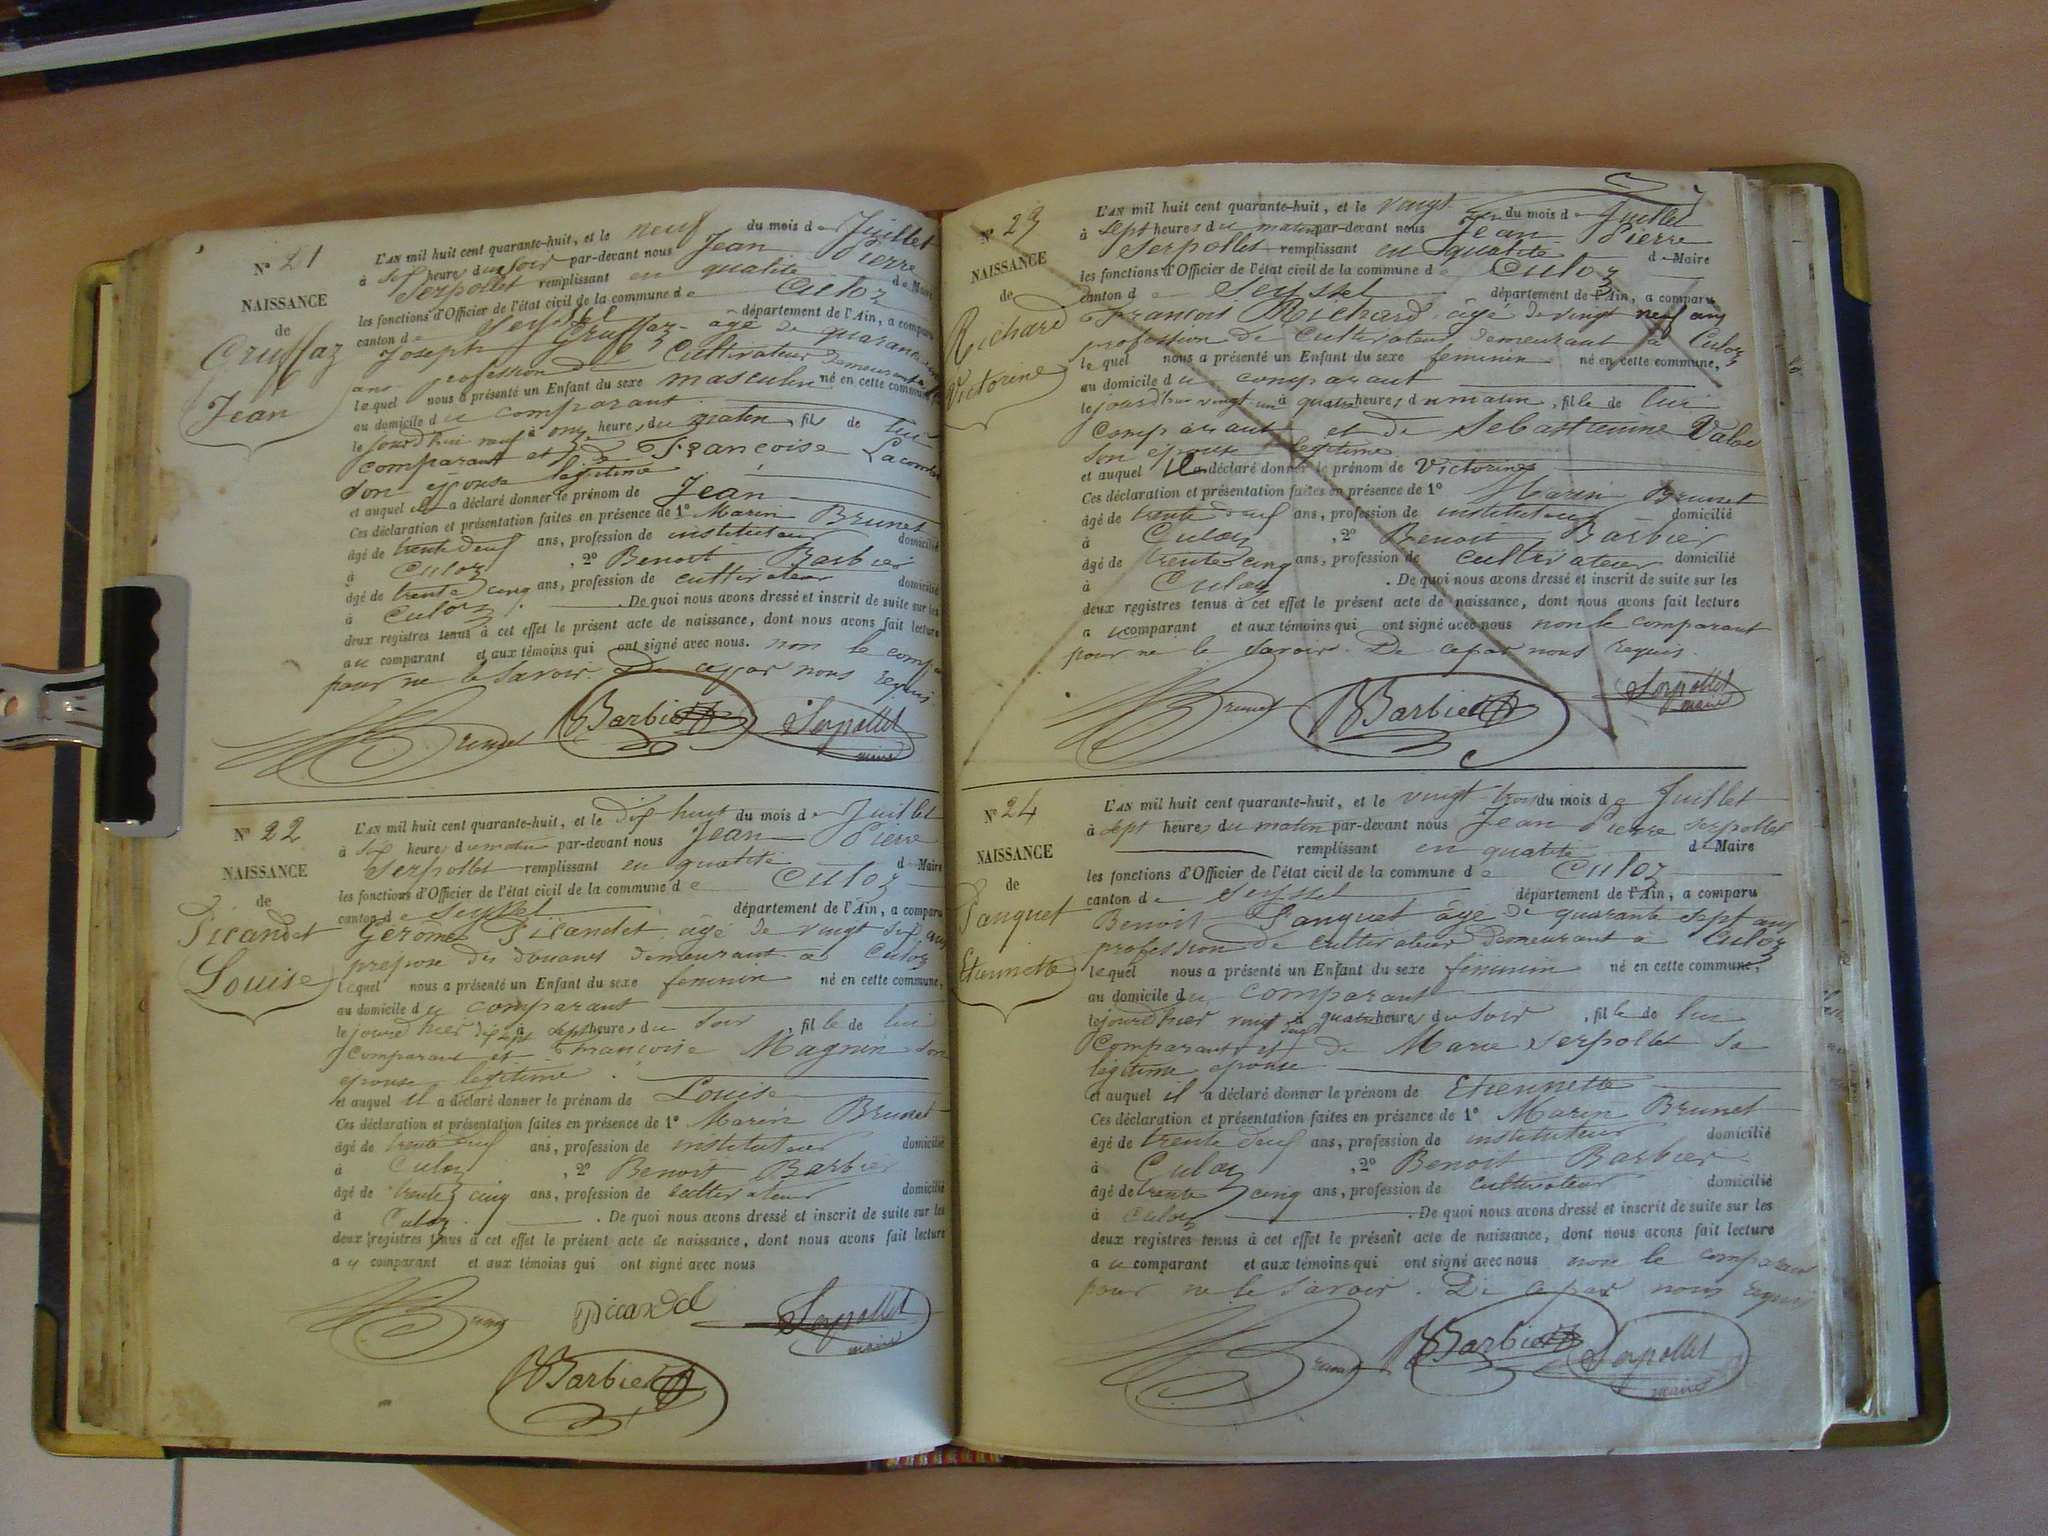 N° 21
NAISSANCE
de
Gruffaz
Jean
L'AN mil huit cent quarante-huit, et le neuf du mois de Juillet
à heures du soir par-devant nous Jean Pierre
Serpollet remplissant en qualité de Maire
les fonctions d'Officier de l'état civil de la commune de Culoz
canton de Seyssel département de l'Ain, a comparu
Joseph Gruffaz âgé de quarante
ans profession de Cultivateur demeurant à
lequel nous a présenté un Enfant du sexe masculin né en cette commune
au domicile du comparant
le jourd'hui neuf à onze heures du matin, fils de lui
comparant et de Françoise Lacombe
son épouse légitime
et auquel il a déclaré donner le prénom de Jean
Ces déclaration et présentation faites en présence de 1° Marin Brunet
âgé de trente deux ans, profession de instituteur domicilié
à Culoz , 2° Benoit Barbier
âgé de trente cinq ans, profession de cultivateur domicilié
à Culoz . De quoi nous avons dressé et inscrit de suite sur les
deux registres tenus à cet effet le présent acte de naissance, dont nous avons fait lecture
au comparant et aux témoins qui ont signé avec nous. non le comp
pour ne le savoir. De ce par nous requis
Brunet Barbier Serpollet
maire
N° 22
NAISSANCE
de
Picandet
Louise
L'AN mil huit cent quarante-huit, et le dix huit du mois de Juillet
à heures du matin par-devant nous Jean Pierre
Serpollet remplissant en qualité de Maire
les fonctions d'Officier de l'état civil de la commune de Culoz
canton de Seyssel département de l'Ain, a comparu
Gerome Picandet âgé de vingt ans
prepose des douanes demeurant à Culoz
lequel nous a présenté un Enfant du sexe feminin né en cette commune,
au domicile du comparant
le jourd'hier dix sept à sept heures du soir, fille de lui
comparant et Françoise Magnin son
epouse legitime
et auquel il a déclaré donner le prénom de Louise
Ces déclaration et présentation faites en présence de 1° Marin Brunet
âgé de trente deux ans, profession de instituteur domicilié
à Culoz , 2° Benoit Barbier
âgé de trente cinq ans, profession de cultivateur domicilié
à Culoz . De quoi nous avons dressé et inscrit de suite sur les
deux registres tenus à cet effet le présent acte de naissance, dont nous avons fait lecture
au comparant et aux témoins qui ont signé avec nous
Brunet Picandet Serpollet
maire
Barbier
N° 23
NAISSANCE
de
Richard
Victorine
L'AN mil huit cent quarante-huit, et le vingt un du mois de Juillet
à sept heures du matin par-devant nous Jean Pierre
Serpollet remplissant en qualité de Maire
les fonctions d'Officier de l'état civil de la commune de Culoz
canton de Seyssel département de l'Ain, a comparu
François Richard âgé de vingt neuf ans
profession de cultivateur demeurant à Culoz
lequel nous a présenté un Enfant du sexe feminin né en cette commune,
au domicile du comparant
le jourd'hui vingt un à quatre heures du matin, fille de lui
comparant et de Sebastienne
son épouse légitime
et auquel il a déclaré donner le prénom de Victorine
Ces déclaration et présentation faites en présence de 1° Marin Brunet
âgé de trente deux ans, profession de instituteur domicilié
à Culoz , 2° Benoit Barbier
âgé de trente cinq ans, profession de cultivateur domicilié
à Culoz . De quoi nous avons dressé et inscrit de suite sur les
deux registres tenus à cet effet le présent acte de naissance, dont nous avons fait lecture
au comparant et aux témoins qui ont signé avec nous non le comparant
pour ne le savoir. De ce par nous requis.
Brunet Barbier Serpollet
maire
N° 24
NAISSANCE
de
Panquet
Etiennette
L'AN mil huit cent quarante-huit, et le vingt trois du mois de Juillet
à sept heures du matin par-devant nous Jean Pierre Serpollet
remplissant en qualité de Maire
les fonctions d'Officier de l'état civil de la commune de Culoz
canton de Seyssel département de l'Ain, a comparu
Benoit Panquet âgé de quarante sept ans
profession de cultivateur demeurant à Culoz
lequel nous a présenté un Enfant du sexe feminin né en cette commune,
au domicile du comparant
le jourd'hier vingt deux à quatre heures du soir, fille de lui
comparant et de Marie Serpollet sa
legitime epouse
et auquel il a déclaré donner le prénom de Etiennette
Ces déclaration et présentation faites en présence de 1° Marin Brunet
âgé de trente deux ans, profession de instituteur domicilié
à Culoz , 2° Benoit Barbier
âgé de trente cinq ans, profession de cultivateur domicilié
à Culoz . De quoi nous avons dressé et inscrit de suite sur les
deux registres tenus à cet effet le présent acte de naissance, dont nous avons fait lecture
au comparant et aux témoins qui ont signé avec nous non le comparant
pour ne le savoir. De ce par nous requis
Brunet Barbier Serpollet
maire